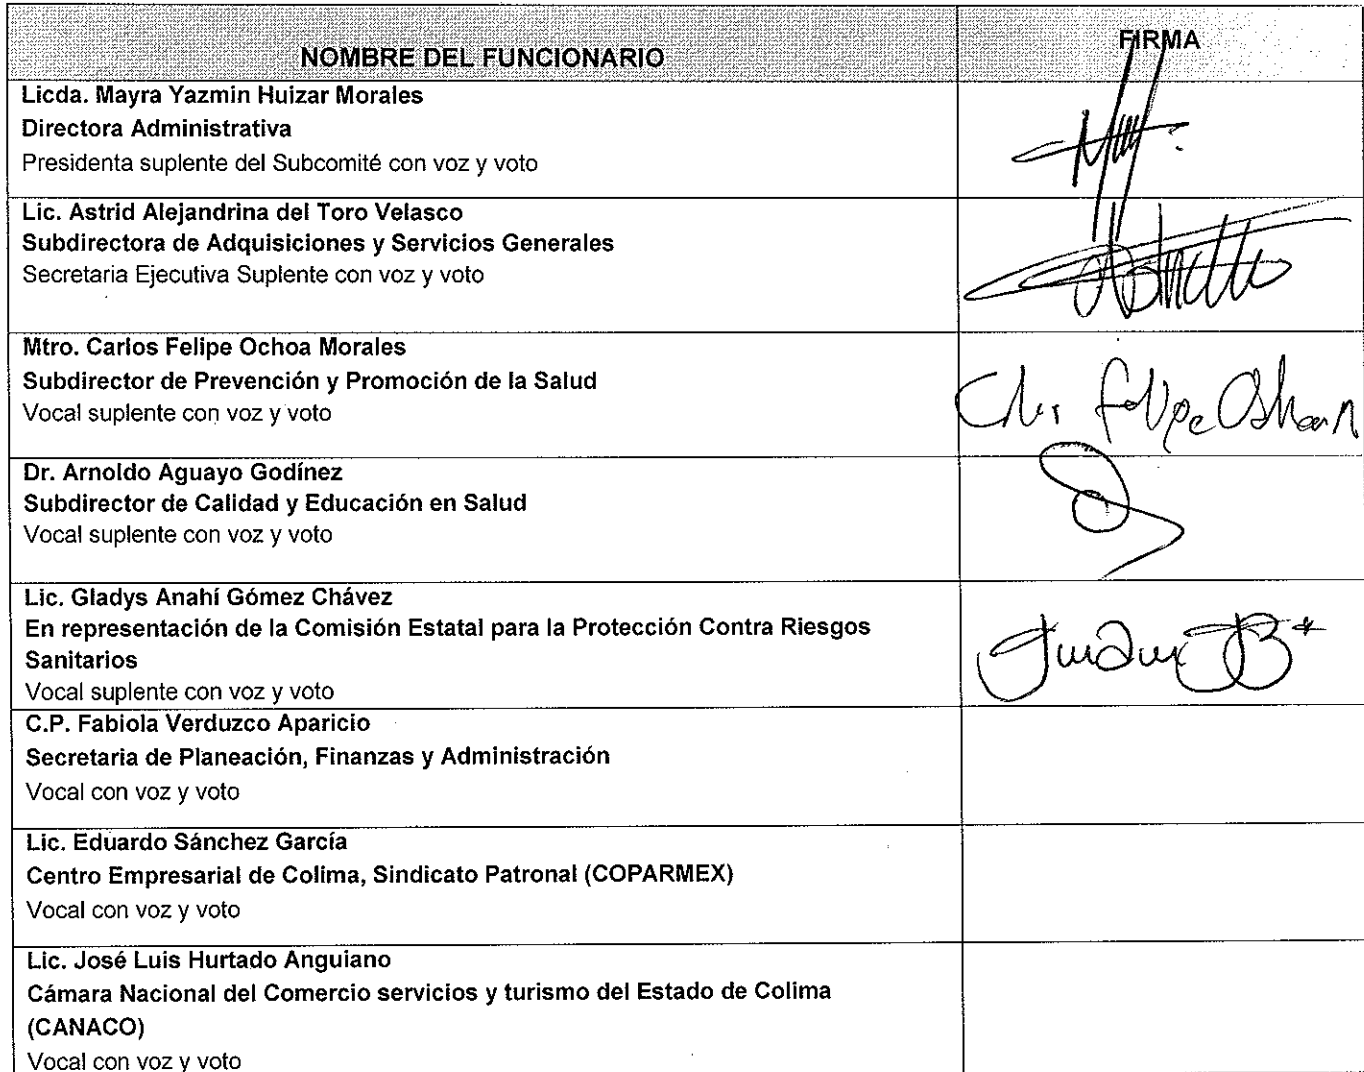 NOMBRE DEL FUNCIONARIO
FIRMA
Licda. Mayra Yazmin Huizar Morales
Directora Administrativa
Presidenta suplente del Subcomité con voz y voto
Lic. Astrid Alejandrina del Toro Velasco
Subdirectora de Adquisiciones y Servicios Generales
Secretaria Ejecutiva Suplente con voz y voto
Mtro. Carlos Felipe Ochoa Morales
Subdirector de Prevención y Promoción de la Salud
Vocal suplente con voz y voto
Dr. Arnoldo Aguayo Godínez
Subdirector de Calidad y Educación en Salud
Vocal suplente con voz y voto
Lic. Gladys Anahí Gómez Chávez
En representación de la Comisión Estatal para la Protección Contra Riesgos
Sanitarios
Vocal suplente con voz y voto
C.P. Fabiola Verduzco Aparicio
Secretaria de Planeación, Finanzas y Administración
Vocal con voz y voto
Lic. Eduardo Sánchez García
Centro Empresarial de Colima, Sindicato Patronal (COPARMEX)
Vocal con voz y voto
Lic. José Luis Hurtado Anguiano
Cámara Nacional del Comercio servicios y turismo del Estado de Colima
(CANACO)
Vocal con voz y voto